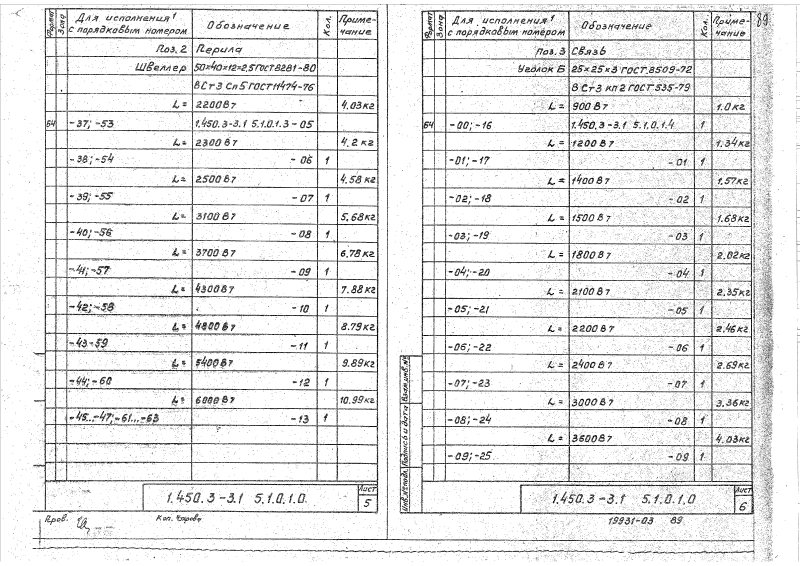 Формат Зона Для исполнения¹ с порядковым номером Обозначение Кол. Примечание
Поз. 2 Перила
Швеллер 50×40×12×2,5 ГОСТ 8281-80
ВСт3 Сп5 ГОСТ 11474-76
L = 2200 В7 4.03кг
Б4 -37; -53 1.450.3-3.1 5.1.0.1.3-05
L = 2300 В7 4.2 кг
-38; -54 -06 1
L = 2500 В7 4.58 кг
-39; -55 -07 1
L = 3100 В7 5.68кг
-40; -56 -08 1
L = 3700 В7 6.78 кг
-41; -57 -09 1
L = 4300 В7 7.88 кг
-42; -58 -10 1
L = 4800 В7 8.79 кг
-43-59 -11 1
L = 5400 В7 9.89кг
-44; -60 -12 1
L = 6000 В7 10.99кг
-45...-47; -61...-63 -13 1
1.450.3-3.1 5.1.0.1.0
Лист
5
Пров.
Коп.
Формат Зона Для исполнения¹ с порядковым номером Обозначение Кол. Примечание
89
Поз. 3 Связь
Уголок Б 25×25×3 ГОСТ 8509-72
ВСт3 кп2 ГОСТ 535-79
L = 900 В7 1.0кг
Б4 -00; -16 1.450.3-3.1 5.1.0.1.4 1
L = 1200 В7 1.34кг
-01; -17 -01 1
L = 1400 В7 1.57кг
-02; -18 -02 1
L = 1500 В7 1.68кг
-03; -19 -03 1
L = 1800 В7 2.02кг
-04; -20 -04 1
L = 2100 В7 2.35кг
-05; -21 -05 1
L = 2200 В7 2.46кг
-06; -22 -06 1
L = 2400 В7 2.69кг
-07; -23 -07 1
L = 3000 В7 3.36кг
-08; -24 -08 1
L = 3600 В7 4.03кг
-09; -25 -09 1
Инв.№подл. Подпись и дата Взам.инв.№
1.450.3-3.1 5.1.0.1.0
Лист
6
19931-03 89